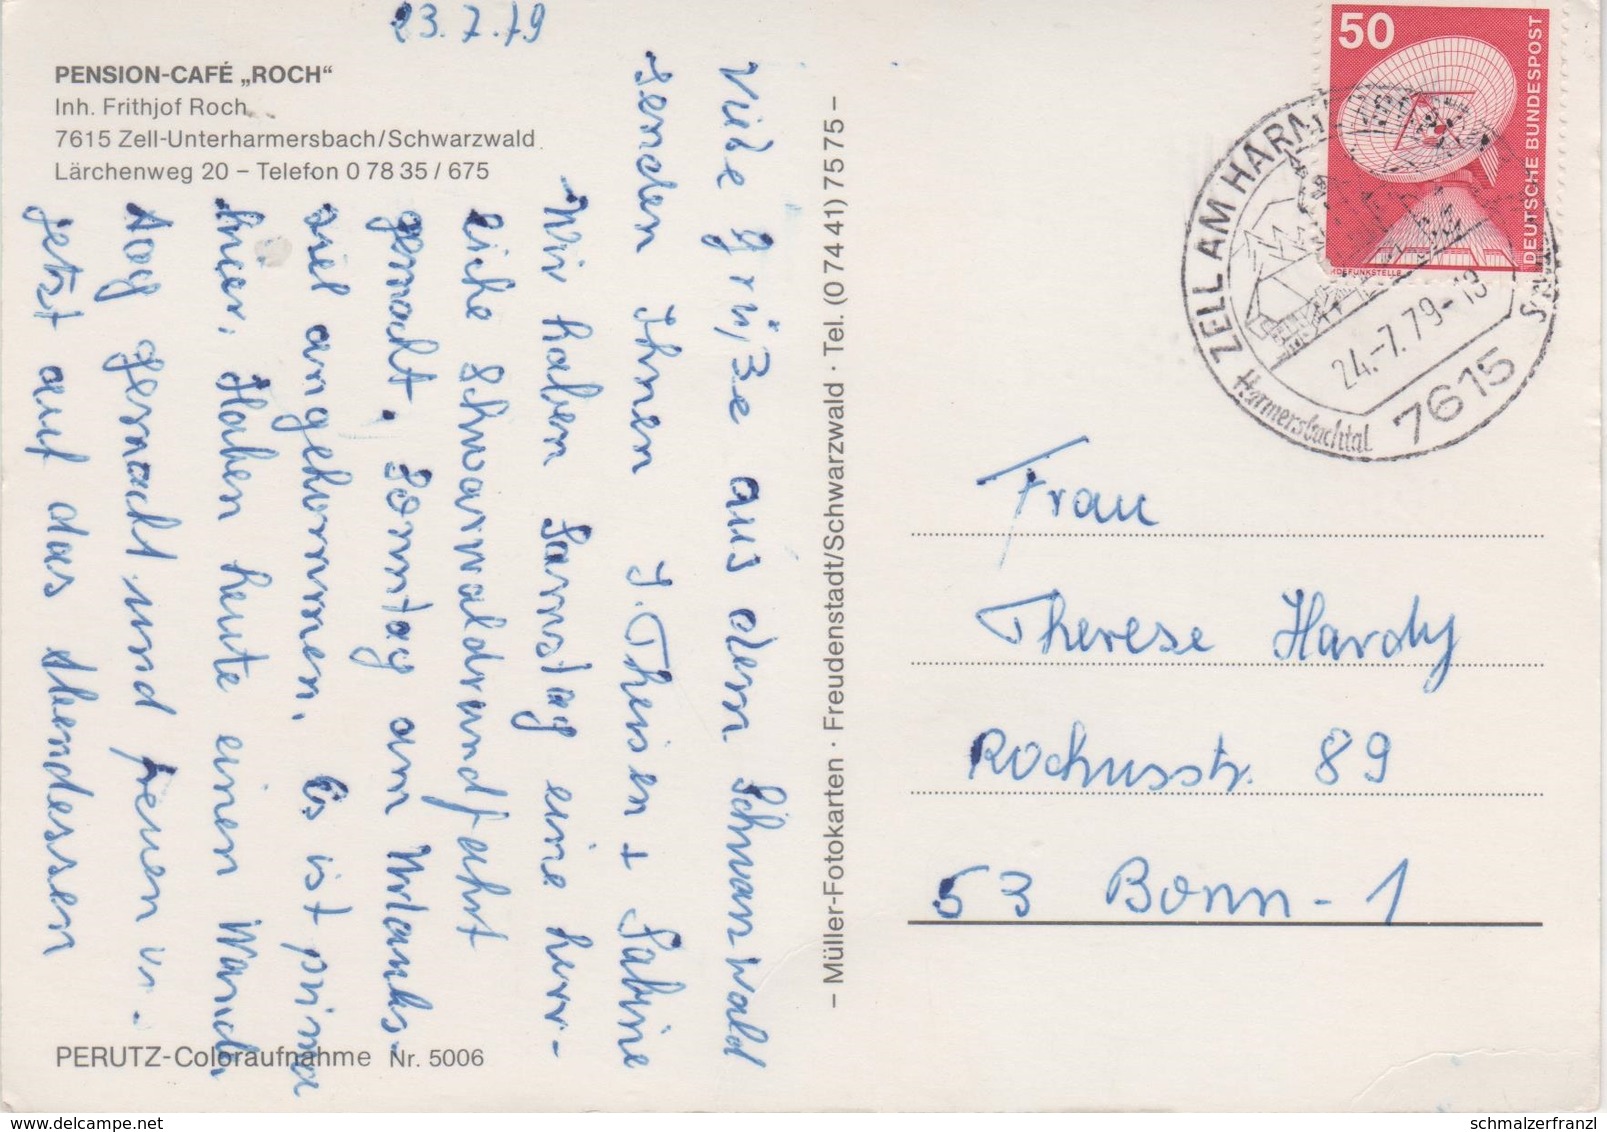 23.7.79
PENSION-CAFÉ „ROCH“
Inh. Frithjof Roch
7615 Zell-Unterharmersbach/Schwarzwald
Lärchenweg 20 – Telefon 0 78 35 / 675
Viele Grüße aus dem Schwarzwald
senden Ihnen I. Theisen + Sabine
Wir haben Samstag eine herr-
liche Schwarzwaldrundfahrt
gemacht. Sonntag am Urlaubs-
ziel angekommen. Es ist prima
hier. Haben heute einen Wander
tag gemacht und freuen un.
jetzt auf das Abendessen
PERUTZ-Coloraufnahme Nr. 5006
– Müller-Fotokarten · Freudenstadt/Schwarzwald · Tel. (0 74 41) 75 75 –
50
DEUTSCHE BUNDESPOST
RDEFUNKSTELLE
ZELL AM HARM
24.-7.79-18
7615
Harmersbachtal
Frau
Therese Hardy
Rochusstr. 89
53 Bonn - 1
schmalzerfranzl
www.delcampe.net